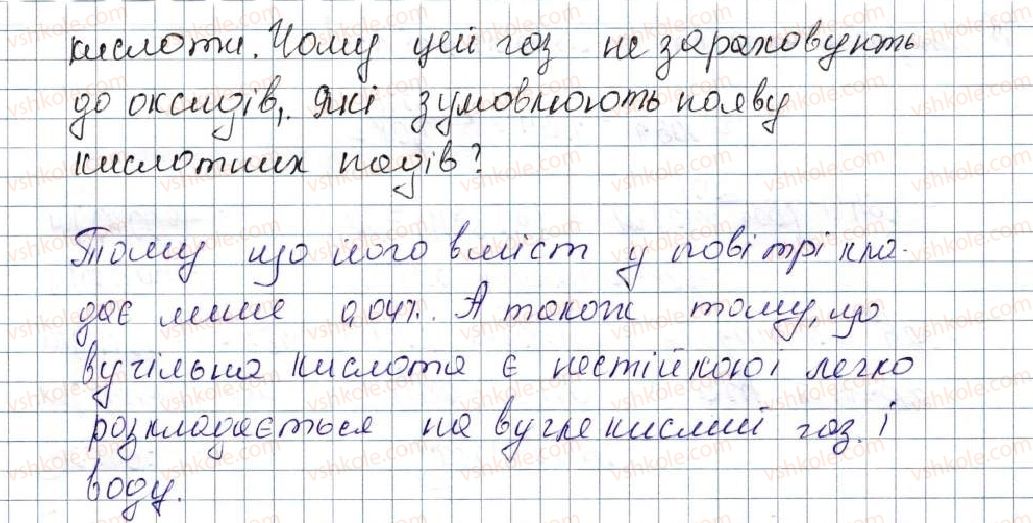 кислоти. Чому цей газ не зараховують
до оксидів, які зумовлюють появу
кислотних подів?
Тому що його вміст у повітрі кла-
дає лише 0,04%. А також тому, що
вугільна кислота є нестійкою і легко
розкладається на вуглекислий газ і
воду.